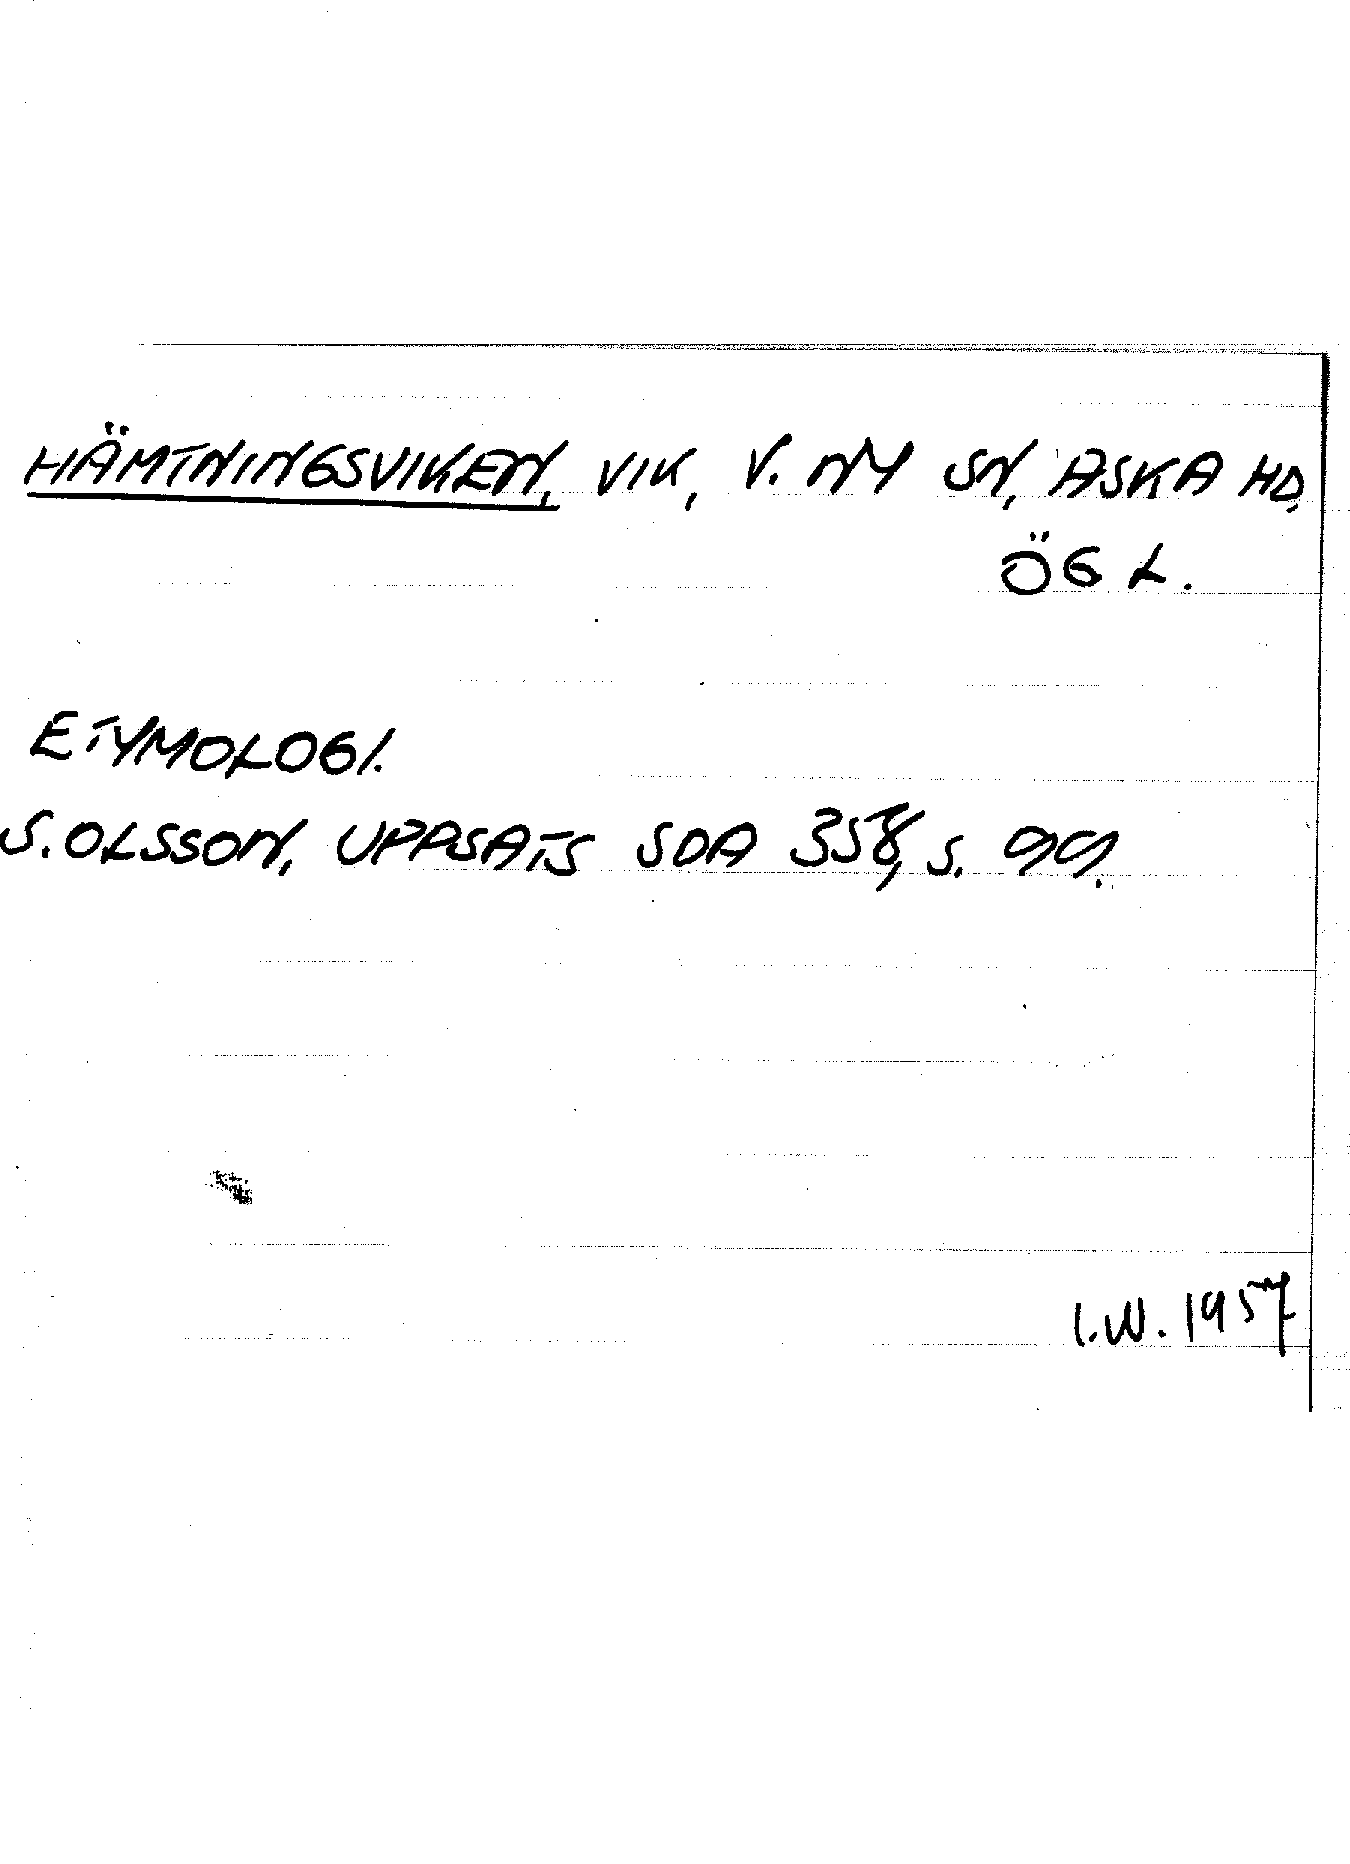 HÄMTNINGSVIKEN, VIK, V. NY SN, ASKA HD,
ÖG L.
ETYMOLOGI.
S. OLSSON, UPPSATS SDA 358, S. 99.
I.W. 1957